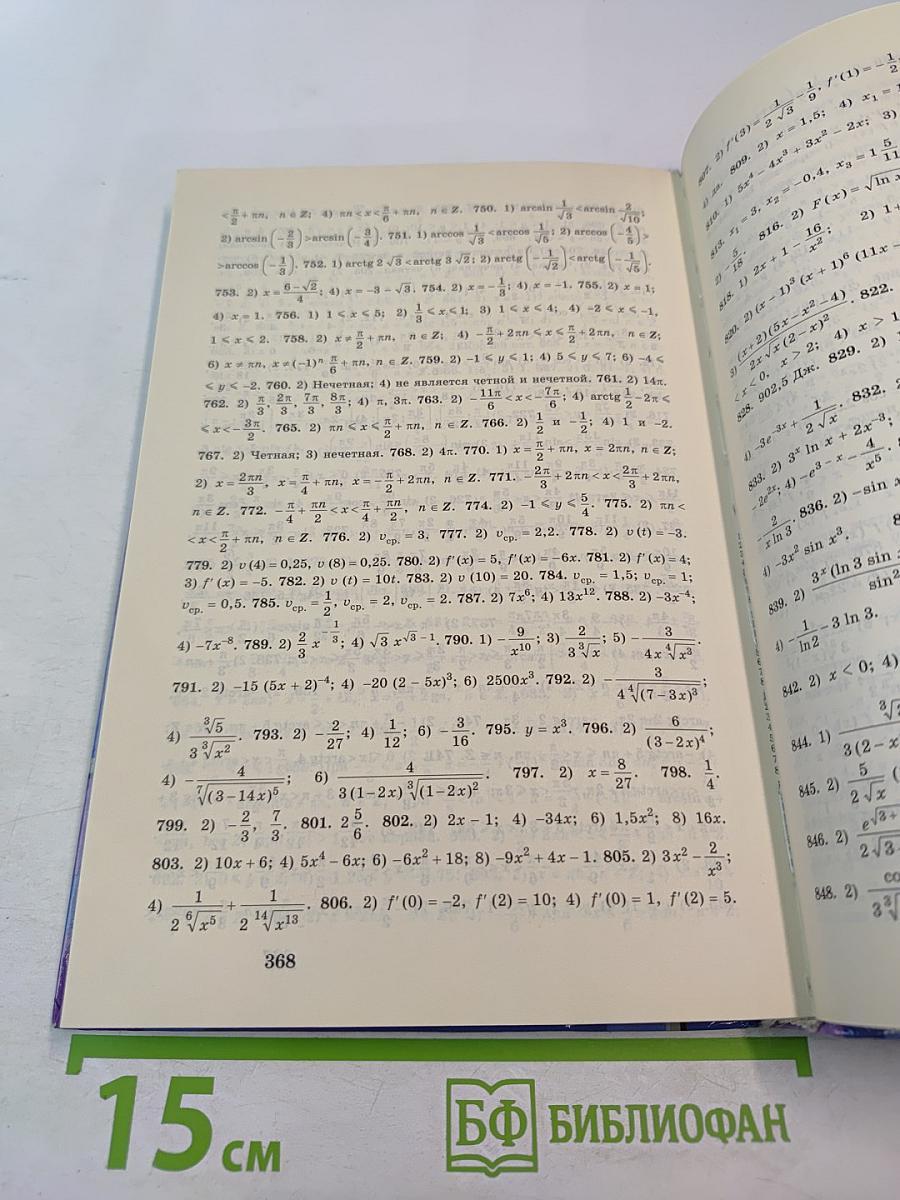 < π/2 + πn, n ∈ Z; 4) πn < x < π/6 + πn, n ∈ Z. 750. 1) arcsin 1/√3 < arcsin 2/√10;
2) arcsin (−2/3) > arcsin (−3/4). 751. 1) arccos 1/√3 < arccos 1/√5; 2) arccos (−4/5) >
> arccos (−1/3). 752. 1) arctg 2√3 < arctg 3√2; 2) arctg (−1/√2) < arctg (−1/√5).
753. 2) x = (6−√2)/4; 4) x = −3 − √3. 754. 2) x = −1/3; 4) x = −1. 755. 2) x = 1;
4) x = 1. 756. 1) 1 ⩽ x ⩽ 5; 2) 1/3 ⩽ x ⩽ 1; 3) 1 ⩽ x ⩽ 4; 4) −2 ⩽ x ⩽ −1,
1 ⩽ x ⩽ 2. 758. 2) x ≠ π/2 + πn, n ∈ Z; 4) −π/2 + 2πn ⩽ x ⩽ π/2 + 2πn, n ∈ Z;
6) x ≠ πn, x ≠ (−1)ⁿ π/6 + πn, n ∈ Z. 759. 2) −1 ⩽ y ⩽ 1; 4) 5 ⩽ y ⩽ 7; 6) −4 ⩽
⩽ y ⩽ −2. 760. 2) Нечетная; 4) не является четной и нечетной. 761. 2) 14π.
762. 2) π/3, 2π/3, 7π/3, 8π/3; 4) π, 3π. 763. 2) −11π/6 < x < −7π/6; 4) arctg 1/2 − 2π ⩽
⩽ x < −3π/2. 765. 2) πn ⩽ x ⩽ π/2 + πn, n ∈ Z. 766. 2) 1/2 и −1/2; 4) 1 и −2.
767. 2) Четная; 3) нечетная. 768. 2) 4π. 770. 1) x = π/2 + πn, x = 2πn, n ∈ Z;
2) x = 2πn/3, x = π/4 + πn, x = −π/2 + 2πn, n ∈ Z. 771. −2π/3 + 2πn < x < 2π/3 + 2πn,
n ∈ Z. 772. −π/4 + πn/2 < x < π/4 + πn/2, n ∈ Z. 774. 2) −1 ⩽ y ⩽ 5/4. 775. 2) πn <
< x < π/2 + πn, n ∈ Z. 776. 2) υср. = 3. 777. 2) υср. = 2,2. 778. 2) υ(t) = −3.
779. 2) υ(4) = 0,25, υ(8) = 0,25. 780. 2) f′(x) = 5, f′(x) = −6x. 781. 2) f′(x) = 4;
3) f′(x) = −5. 782. 2) υ(t) = 10t. 783. 2) υ(10) = 20. 784. υср. = 1,5; υср. = 1;
υср. = 0,5. 785. υср. = 1/2, υср. = 2, υср. = 2. 787. 2) 7x⁶; 4) 13x¹². 788. 2) −3x⁻⁴;
4) −7x⁻⁸. 789. 2) 2/3 x^(−1/3); 4) √3 x^(√3−1). 790. 1) −9/x¹⁰; 3) 2/(3∛x); 5) −3/(4x ∜x³).
791. 2) −15(5x + 2)⁻⁴; 4) −20(2 − 5x)³; 6) 2500x³. 792. 2) −3/(4∜(7−3x)³);
4) ∛5/(3∛x²). 793. 2) −2/27; 4) 1/12; 6) −3/16. 795. y = x³. 796. 2) 6/(3−2x)⁴;
4) −4/⁷√(3−14x)⁵; 6) 4/(3(1−2x)∛(1−2x)²). 797. 2) x = 8/27. 798. 1/4.
799. 2) −2/3, 7/3. 801. 2 5/6. 802. 2) 2x − 1; 4) −34x; 6) 1,5x²; 8) 16x.
803. 2) 10x + 6; 4) 5x⁴ − 6x; 6) −6x² + 18; 8) −9x² + 4x − 1. 805. 2) 3x² − 2/x³;
4) 1/(2 ⁶√x⁵) + 1/(2 ¹⁴√x¹³). 806. 2) f′(0) = −2, f′(2) = 10; 4) f′(0) = 1, f′(2) = 5.
368
807. 2) f′(3) = 1/(2√3) − 1/9, f′(1) = −1/2
809. 2) x = 1,5; 4) x₁ = 1
810. 1) 5x⁴ − 4x³ + 3x² − 2x; 3)
813. x₁ = 3, x₂ = −0,4, x₃ = 1 5/11
2) −5/18. 816. 2) F(x) = √ln x
818. 1) 2x + 1 − 16/x²; 2) 1 +
820. 2) (x − 1)³ (x + 1)⁶ (11x −
3) (x+2)(5x−x²−4)/(2x√x(2−x)²). 822.
< x < 0, x > 2; 4) x > 1
828. 902,5 Дж. 829. 2)
4) −3e^(−3x) + 1/(2√x). 832. 2)
833. 2) 3ˣ ln x + 2x⁻³;
−2e²ˣ; 4) −e^(3−x) − 4/x⁵.
− 2/(x ln 3). 836. 2) −sin x
4) −3x² sin x³.
839. 2) 3ˣ(ln 3 sin x / sin²
4) −1/ln2 − 3 ln 3.
842. 2) x < 0; 4)
844. 1) ∛ / 3(2−x
845. 2) 5/(2√x) (
846. 2) e^√3+ / 2√3
848. 2) co / 3∛
15 см
БФ БИБЛИОФАН